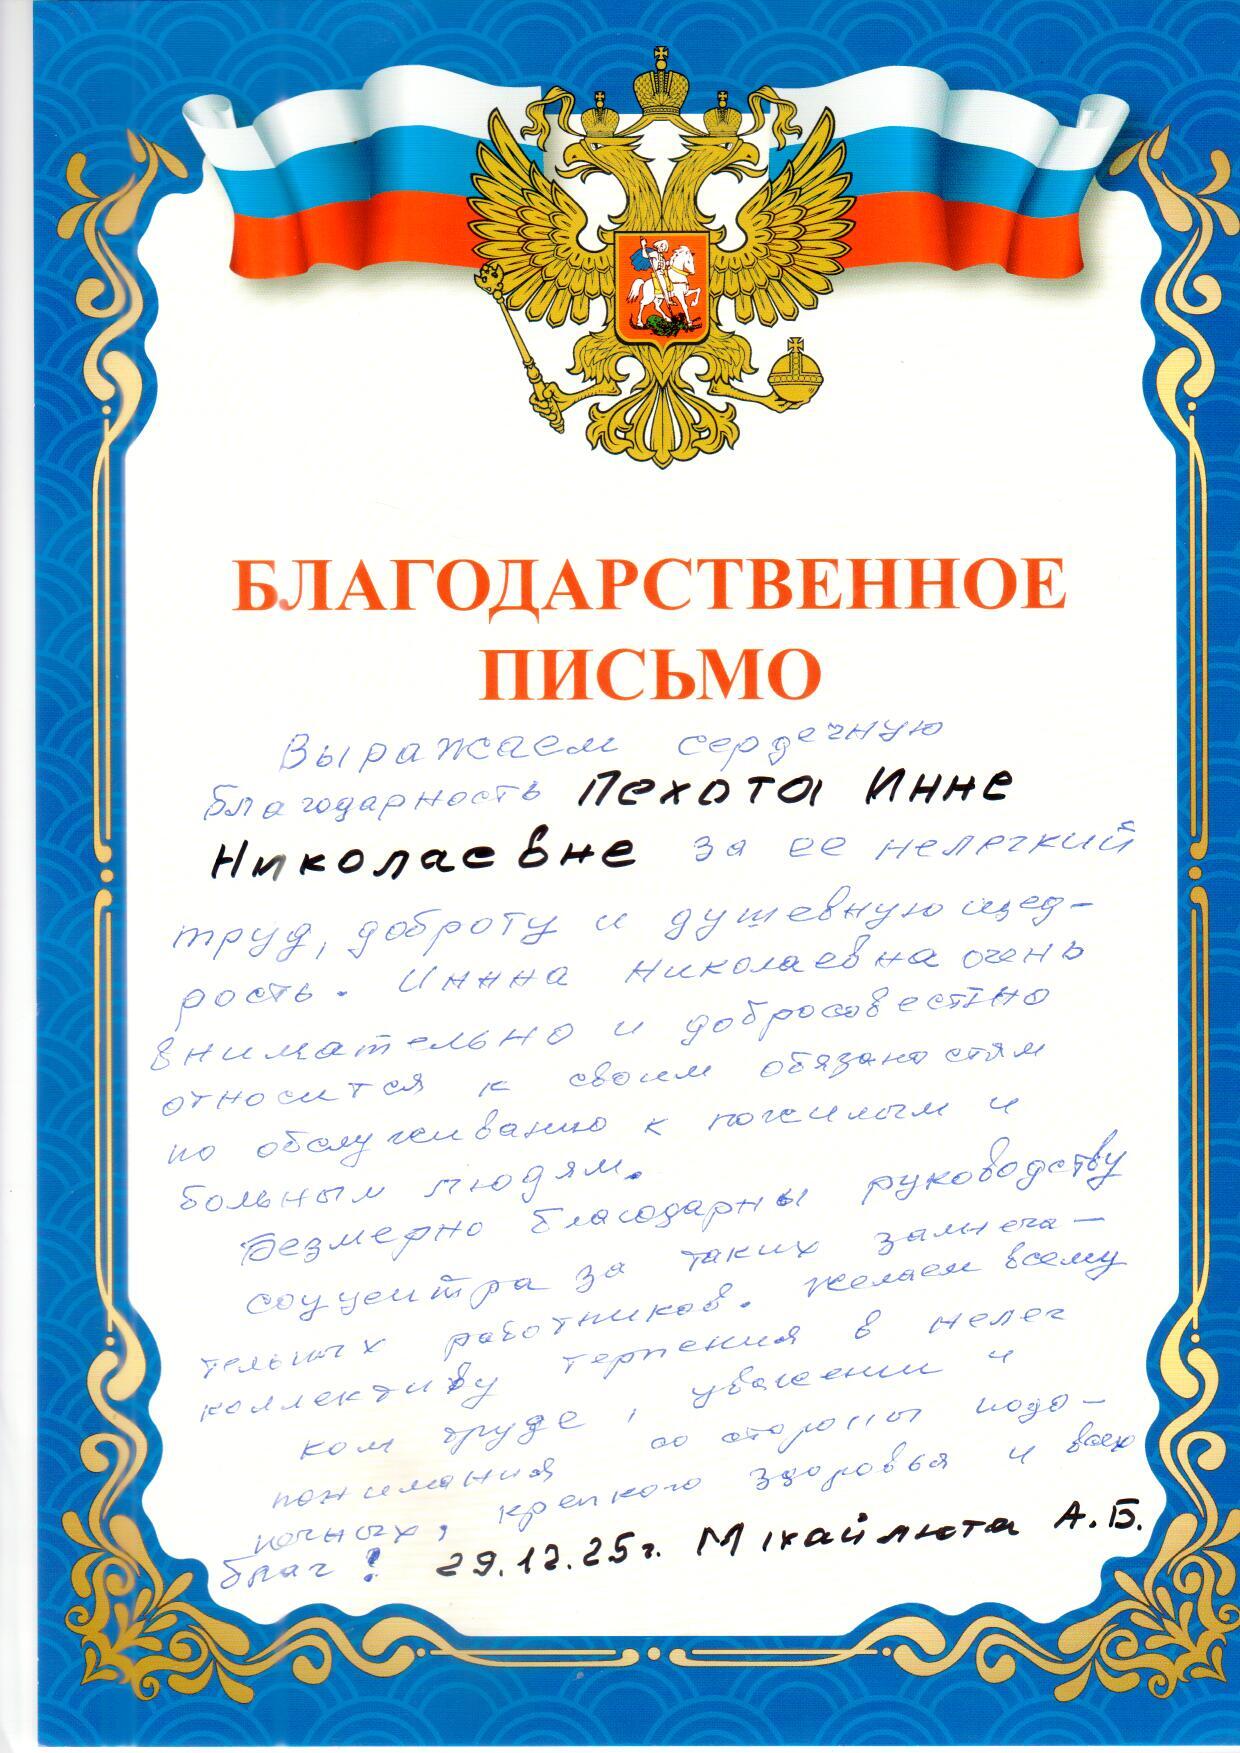 БЛАГОДАРСТВЕННОЕ
ПИСЬМО
Выражаем сердечную
благодарность Пехота Инне
Николаевне за ее нелегкий
труд, доброту и душевную щед-
рость. Иннна Николаевна очень
внимательно и добросовестно
относится к своим обязаностям
по обслуживанию к пожилым и
больным людям.
Безмерно благодарны руководству
соццентра за таких замеча-
тельных работников. Желаем всему
коллективу терпения в нелег
ком труде, уважении и
понимания со стороны подо-
печных, крепкого здоровья и всех
благ! 29.12.25г. Михайлюта А.Б.